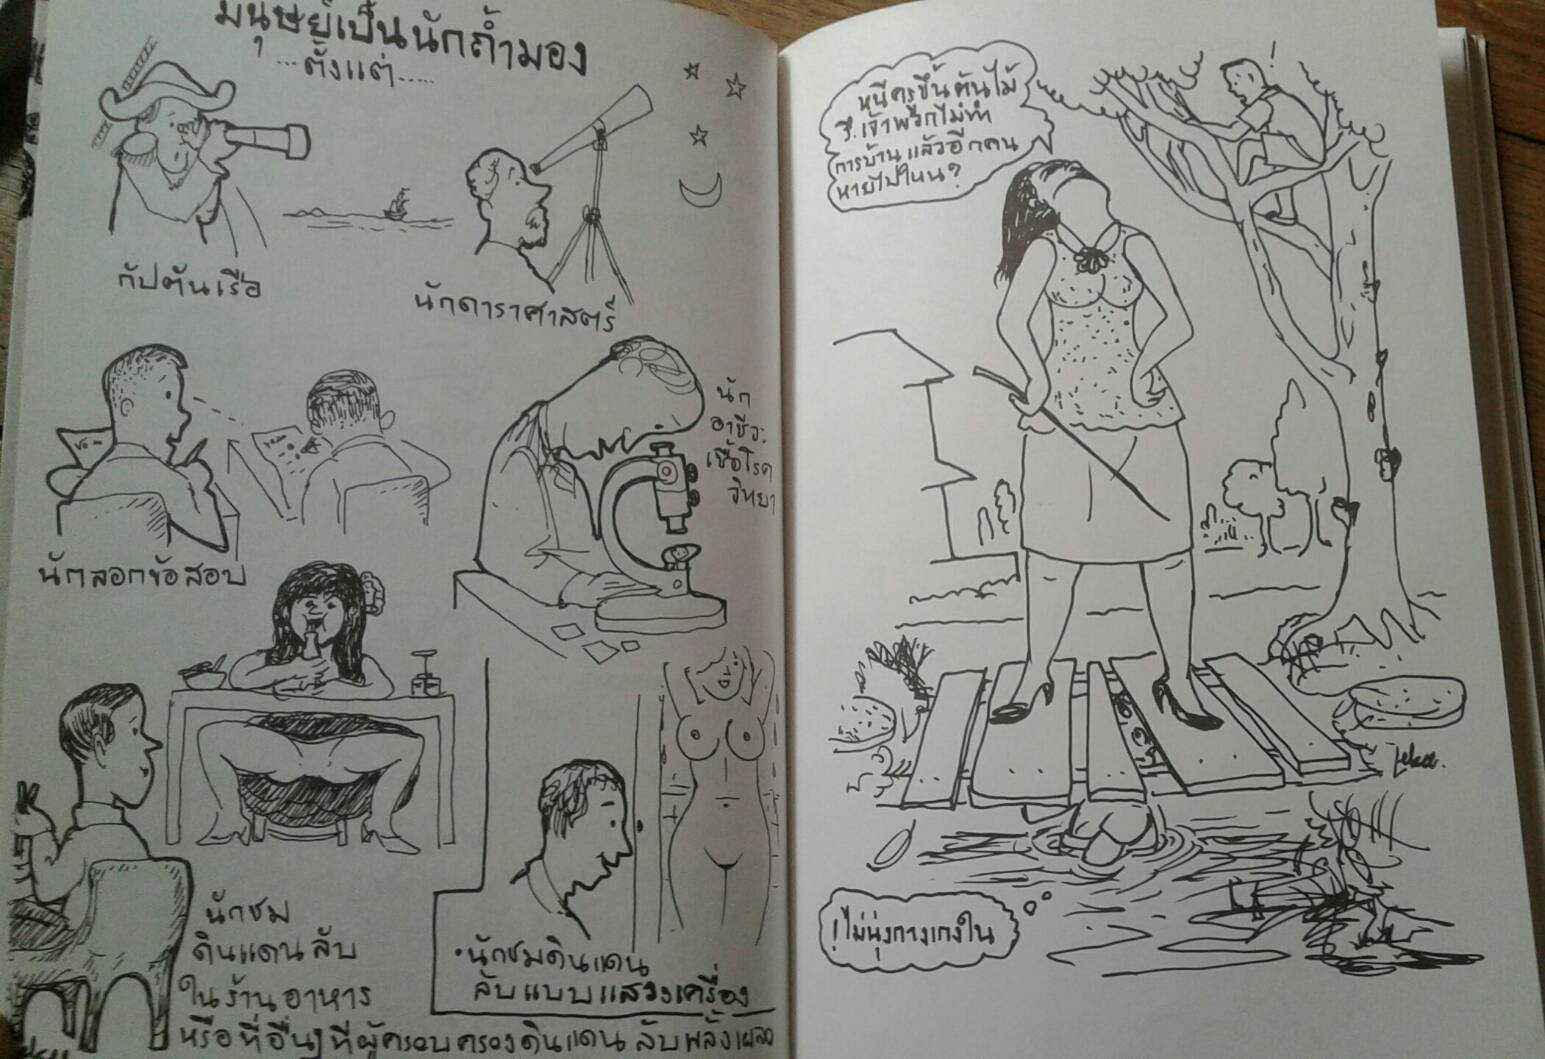 มนุษย์เป็นนักถ้ำมอง
...ตั้งแต่.....
กัปตันเรือ
นักดาราศาสตร์
นักลอกข้อสอบ
นัก
อาชีวะ
เชื้อโรค
วิทยา
นักชม
ดินแดนลับ
ในร้านอาหาร
หรือที่อื่นๆ ที่ผู้ครอบครองดินแดนลับพลั้งเผลอ
• นักชมดินแดน
ลับแบบแสวงเครื่อง
หนีครูขึ้นต้นไม้
รึ.เจ้าพวกไม่ทำ
การบ้าน แล้วอีกคน
หายไปไหน?
!ไม่นุ่งกางเกงใน